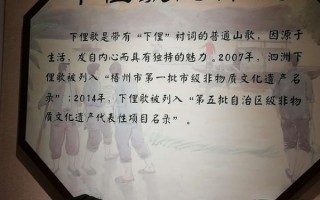 下俚歌是带有“下俚”衬词的普通山歌，因源于
生活，发自内心而具有独特的魅力。2007年，泗洲下
俚歌被列入“梧州市第一批市级非物质文化遗产名
录”；2014年，下俚歌被列入“第五批自治区级非物
质文化遗产代表性项目名录”。